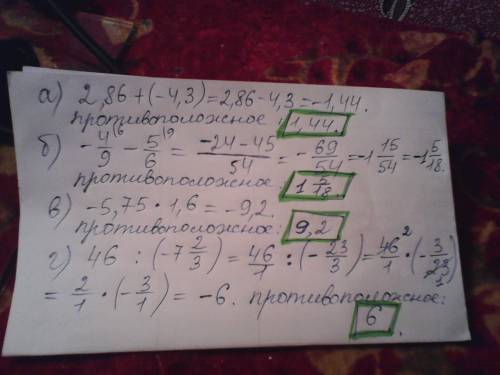 а) 2,86 + (-4,3) = 2,86 - 4,3 = -1,44.
противоположное: 1,44.
б) -4/9 |6 - 5/6 |9 = (-24-45)/54 = -69/54 = -1 15/54 = -1 5/18.
противоположное: 1 5/18.
в) -5,75 · 1,6 = -9,2.
противоположное: 9,2
г) 46 : (-7 2/3) = 46/1 : (-23/3) = 46/1 2 · (-3/23 1)
= 2/1 · (-3/1) = -6. противоположное:
6.